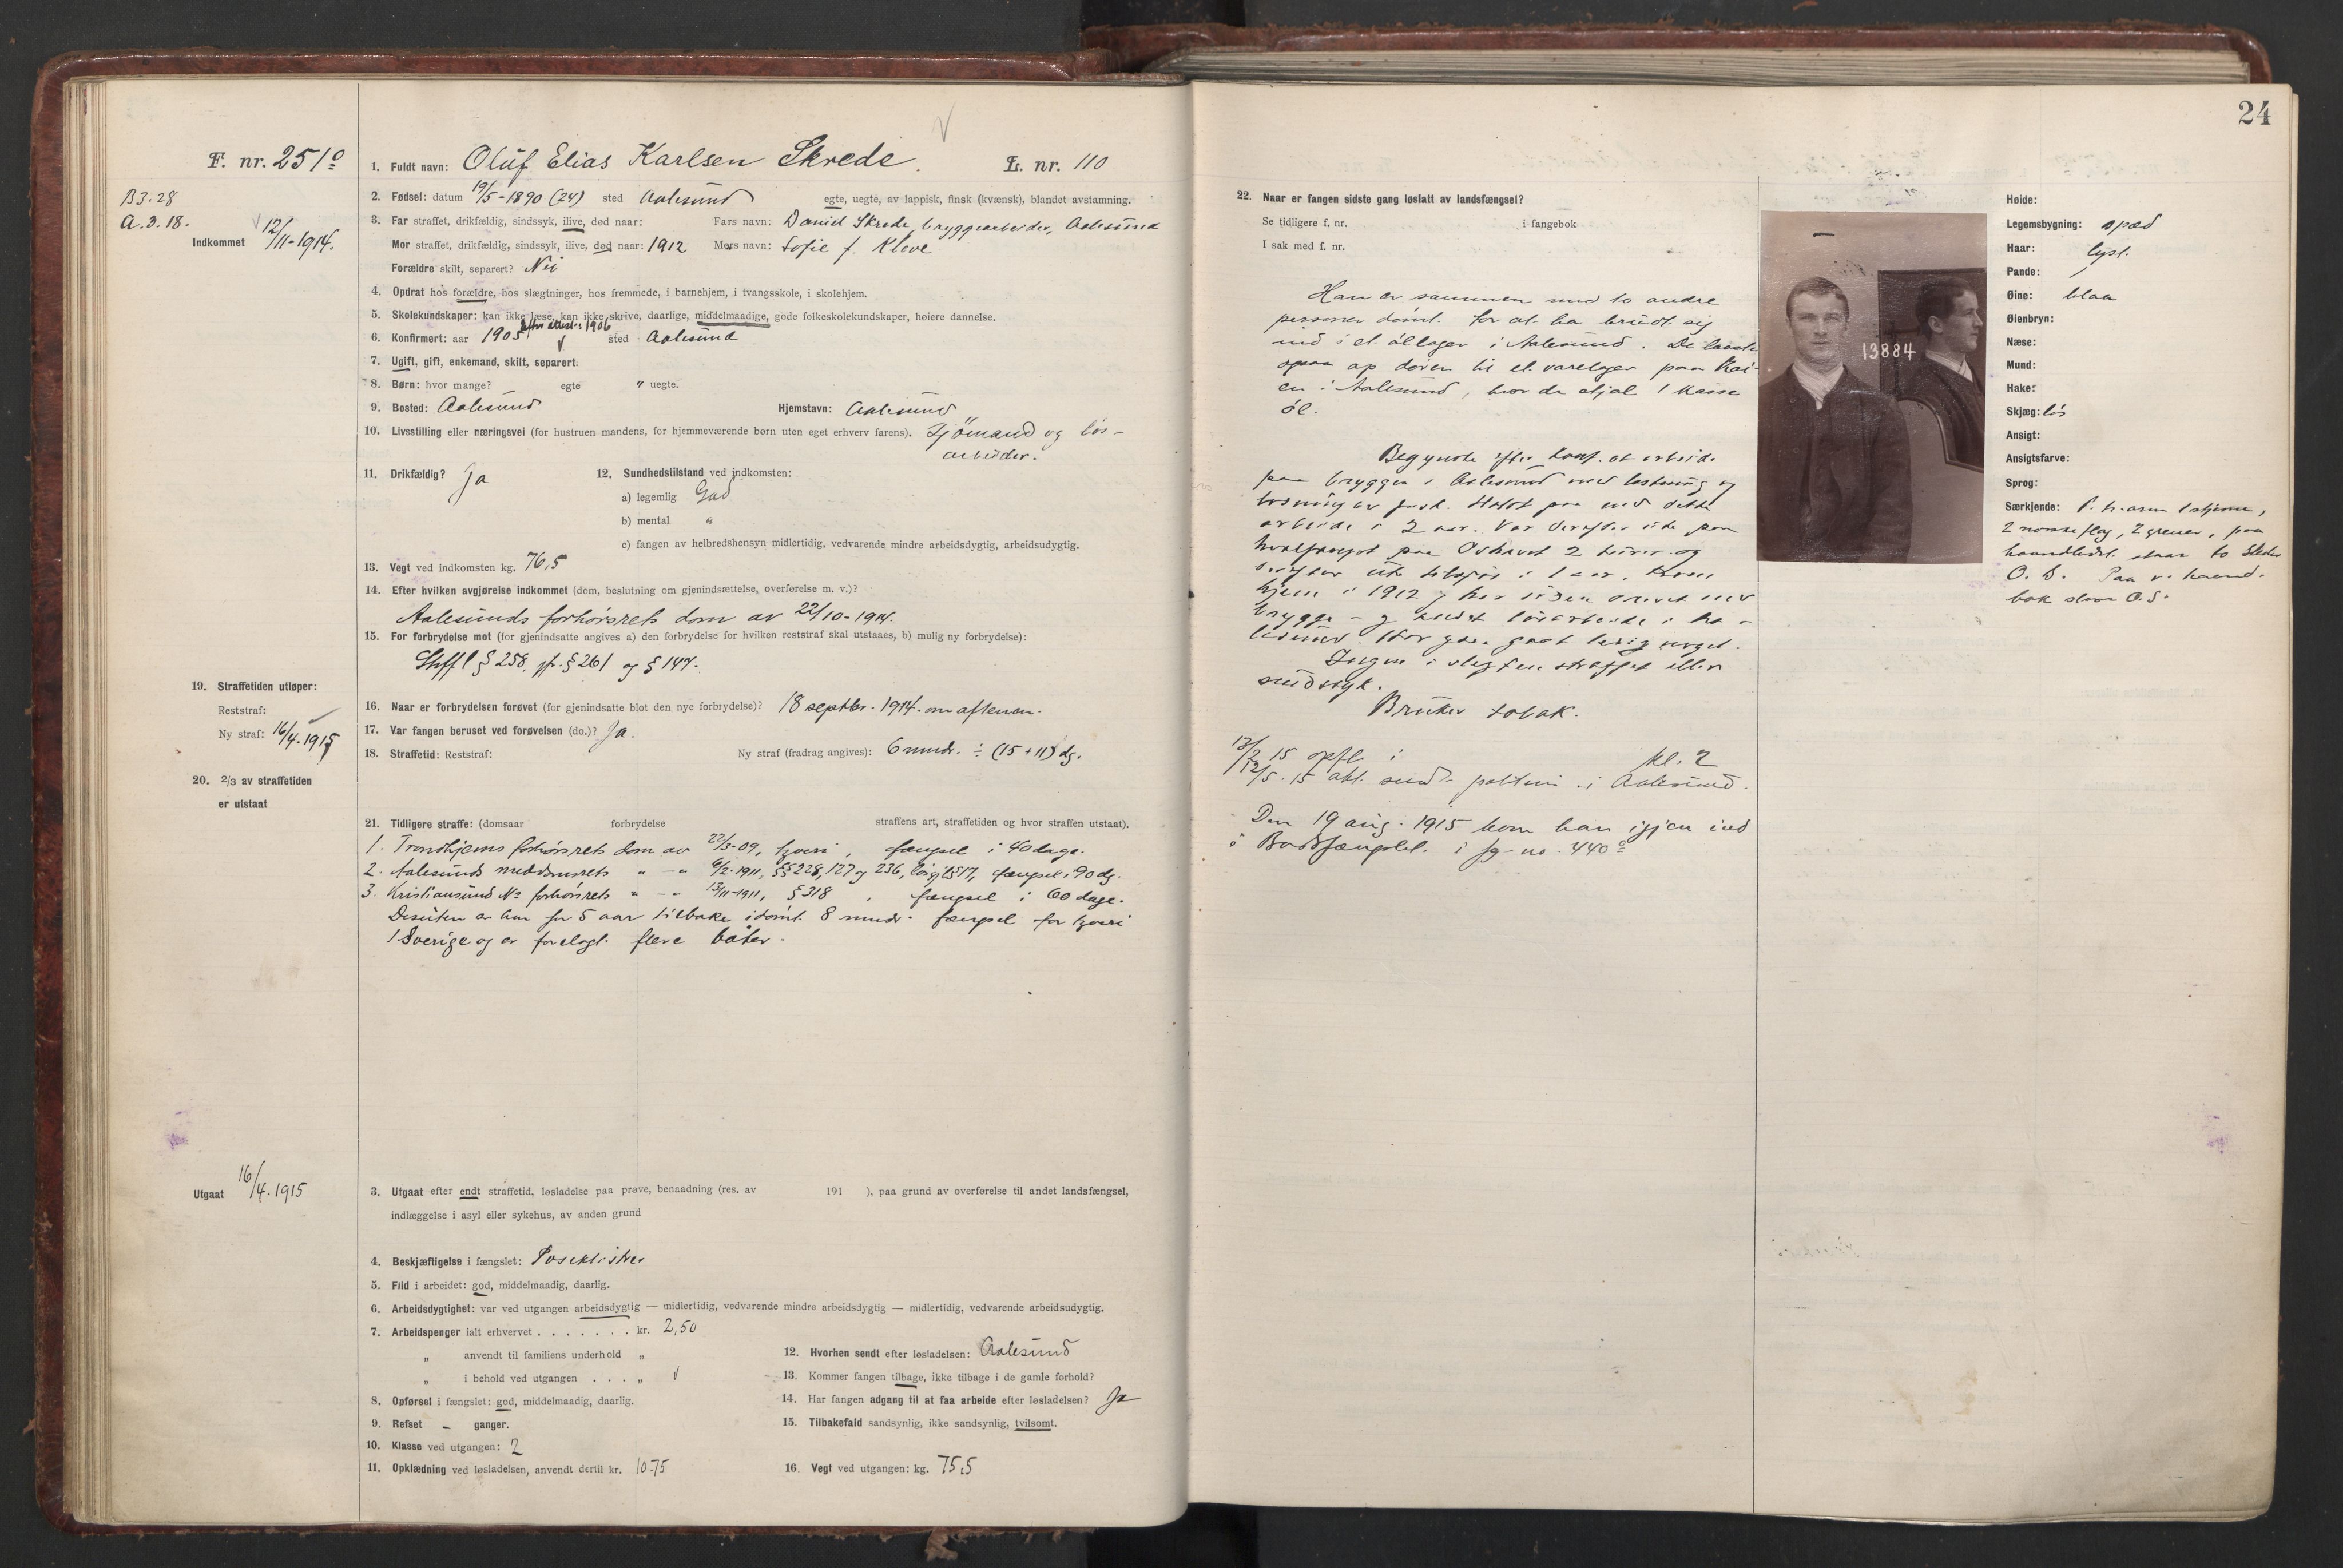 F. nr. 251º
B3.28
A.3.18.
Indkommet 12/11-1914.
1. Fuldt navn: Oluf Elias Karlsen Skrede. L. nr. 110
2. Fødsel: datum 19/5-1890 (24) sted Aalesund egte, uegte, av lappisk, finsk (kvænsk), blandet avstamning.
3. Far straffet, drikfældig, sindssyk, ilive, død naar: Fars navn: Daniel Skrede, bryggearbeider, Aalesund
Mor straffet, drikfældig, sindssyk, ilive, død naar: 1912 Mors navn: Sofie f. Kleve
Forældre skilt, separert? Nei
4. Opdrat hos forældre, hos slægtninger, hos fremmede, i barnehjem, i tvangsskole, i skolehjem.
5. Skolekundskaper: kan ikke læse, kan ikke skrive, daarlige, middelmaadige, gode folkeskolekundskaper, høiere dannelse.
efter attest: 1906
6. Konfirmert: aar 1905 sted Aalesund
7. Ugift, gift, enkemand, skilt, separert.
8. Børn: hvor mange? egte " uegte.
9. Bosted: Aalesund Hjemstavn: Aalesund
10. Livsstilling eller næringsvei (for hustruen mandens, for hjemmeværende børn uten eget erhverv farens). Sjömand og løs-
arbeider.
11. Drikfældig? Ja 12. Sundhedstilstand ved indkomsten:
a) legemlig God
b) mental "
c) fangen av helbredshensyn midlertidig, vedvarende mindre arbeidsdygtig, arbeidsudygtig.
13. Vegt ved indkomsten kg. 76,5
14. Efter hvilken avgjørelse indkommet (dom, beslutning om gjenindsættelse, overførelse m. v.)?
Aalesunds forhørsrets dom av 22/10-1914.
15. For forbrydelse mot (for gjenindsatte angives a) den forbrydelse for hvilken reststraf skal utstaaes, b) mulig ny forbrydelse):
Strffl § 258, jfr. § 261 og § 147.
16. Naar er forbrydelsen forøvet (for gjenindsatte blot den nye forbrydelse)? 18 septbr. 1914. om aftenen.
17. Var fangen beruset ved forøvelsen (do.)? Ja.
18. Straffetid: Reststraf: Ny straf (fradrag angives): 6 mndr. ÷ (15+11) dg.
19. Straffetiden utløper:
Reststraf:
Ny straf: 16/4.1915
20. 2/3 av straffetiden
er utstaat
21. Tidligere straffe: (domsaar forbrydelse straffens art, straffetiden og hvor straffen utstaat).
1. Trondhjems forhørsrets dom av 22/3-09, tyveri, fængsel i 40 dage.
2. Aalesunds meddomsrets " - " 6/2-1911, §§ 228, 127 og 236, fængsel i 90 dg.
3. Kristiansund N. forhørsrets " - " 13/11-1911, § 318, fængsel i 60 dage.
Desuten er han for 5 aar tilbake idømt 8 mndr. fængsel for tyveri
i Sverige og er forelagt flere bøter.
Utgaat 16/4.1915
3. Utgaat efter endt straffetid, løsladelse paa prøve, benaadning (res. av 191 ), paa grund av overførelse til andet landsfængsel,
indlæggelse i asyl eller sykehus, av anden grund
4. Beskjæftigelse i fængslet: Poseklistrer
5. Flid i arbeidet: god, middelmaadig, daarlig.
6. Arbeidsdygtighet: var ved utgangen arbeidsdygtig — midlertidig, vedvarende mindre arbeidsdygtig — midlertidig, vedvarende arbeidsudygtig.
7. Arbeidspenger ialt erhvervet . . . . . . . kr. 2,50
" anvendt til familiens underhold "
" i behold ved utgangen . . . "
8. Opførsel i fængslet: god, middelmaadig, daarlig.
9. Refset - ganger.
10. Klasse ved utgangen: 2
11. Opklædning ved løsladelsen, anvendt dertil kr. 10.75
12. Hvorhen sendt efter løsladelsen: Aalesund
13. Kommer fangen tilbage, ikke tilbage i de gamle forhold?
14. Har fangen adgang til at faa arbeide efter løsladelsen? Ja
15. Tilbakefald sandsynlig, ikke sandsynlig, tvilsomt.
16. Vegt ved utgangen: kg. 75,5
24
22. Naar er fangen sidste gang løslatt av landsfængsel?
Se tidligere f. nr. i fangebok
I sak med f. nr.
Han er sammen med to andre
personer dømt for at ha brudt sig
ind i et øllager i Aalesund. De
ogsaa op døren til et varelager paa Kai-
en i Aalesund, hvor de stjal 1 kasse
øl.
Begyndte efter konf. at arbeide
paa bryggen i Aalesund med lastning og
losning av fisk. Holdt paa med dette
arbeide i 2 aar. Var derefter ute paa
hvalfangst paa Ishavet 2 turer og
derefter ute tilsjøs i 1 aar. Kom
hjem i 1912 og har siden drevet med
brygge- og andet løsarbeide i Aa-
lesund. Har gaat ledig meget.
Ingen i slegten straffet eller
sindssyk.
Bruker tobak.
13/2 15 opfl. i kl. 2
12/5.15 att. sendt politim. i Aalesund.
Den 19 aug. 1915 kom han igjen ind
i Bodsfængslet i fg. no. 440º
13884
Høide:
Legemsbygning: spæd
Haar: lyst.
Pande:
Øine: blaa
Øienbryn:
Næse:
Mund:
Hake:
Skjæg: løs
Ansigt:
Ansigtsfarve:
Sprog:
Særkjende: P. h. arm 1 stjerne,
2 norske flag, 2 grener, paa
haandledet staar to steder
O. S. Paa v. haand-
bak staar O.S.